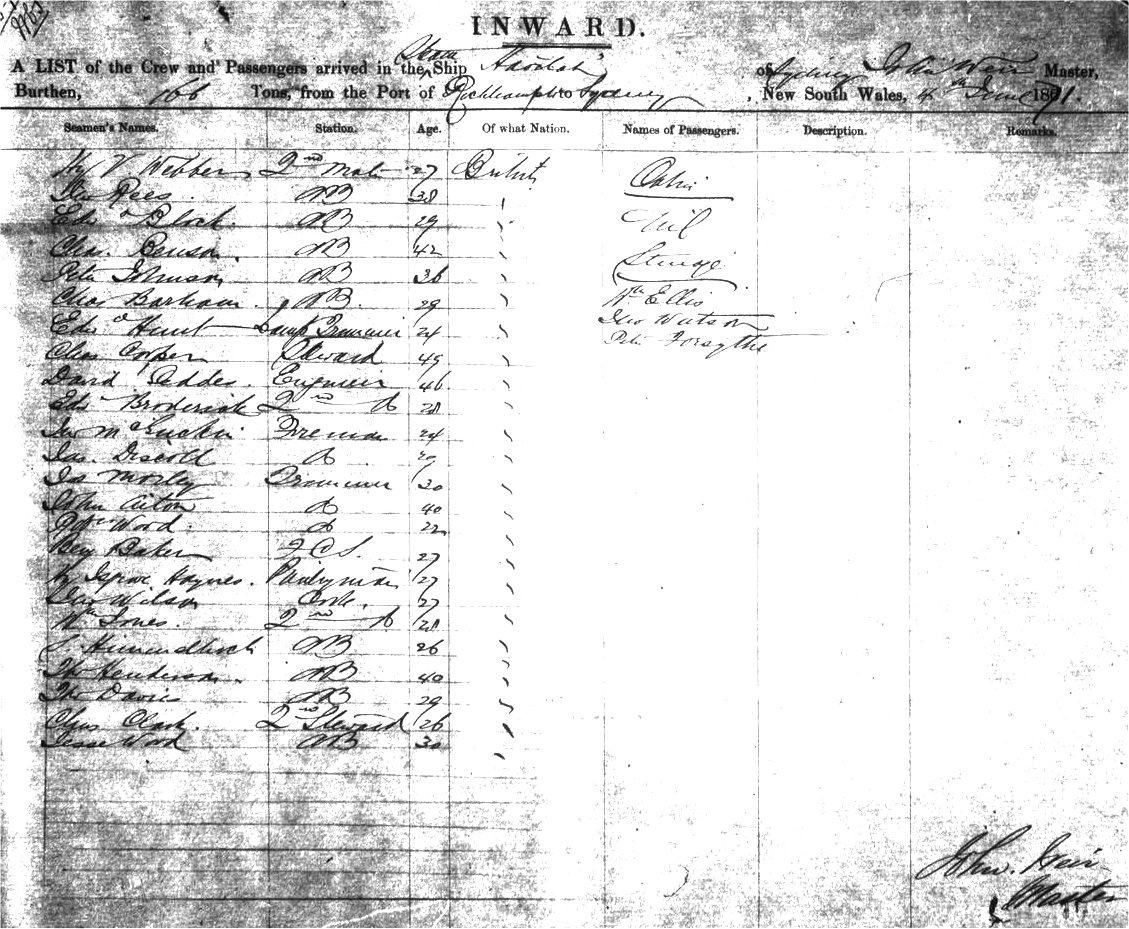 INWARD.
A LIST of the Crew and Passengers arrived in the Steam Ship of Sydney John Weir Master,
Burthen, Tons, from the Port of Rockhampton to Sydney, New South Wales, 4th June 1891.
Seamen's Names. Station. Age. Of what Nation. Names of Passengers. Description. Remarks.
Hy V Webber 2nd Mate 27 British Cabin
Rees AB 38
Edwd Block AB 29 Nil
Chas. Benson. AB 42 Steerage
Peter Johnson AB 36
Chas Barham AB. 29 Wm Ellis
Edwd Hunt Lamp Trimmer 24 Jno Watson
Chas Cooper Steward 49 Peter Forsythe
David Geddes. Engineer 46
Edwd Broderick 2nd Do 28
Jno Fireman 24
Jas. Driscoll Do
Jas Morley Trimmer 30
John Aiton Do 40
Wood. Do 22
Benj Baker F C S 27
Haynes. Pantryman 27
Jno Wilson Cook. 27
Wm Jones. 2nd Do 28
AB 26
Thos Henderson. AB 40
Thos Davies AB 29
Chas Clark. 2nd Steward 26
Jesse Wood AB 30
John. Weir
Master